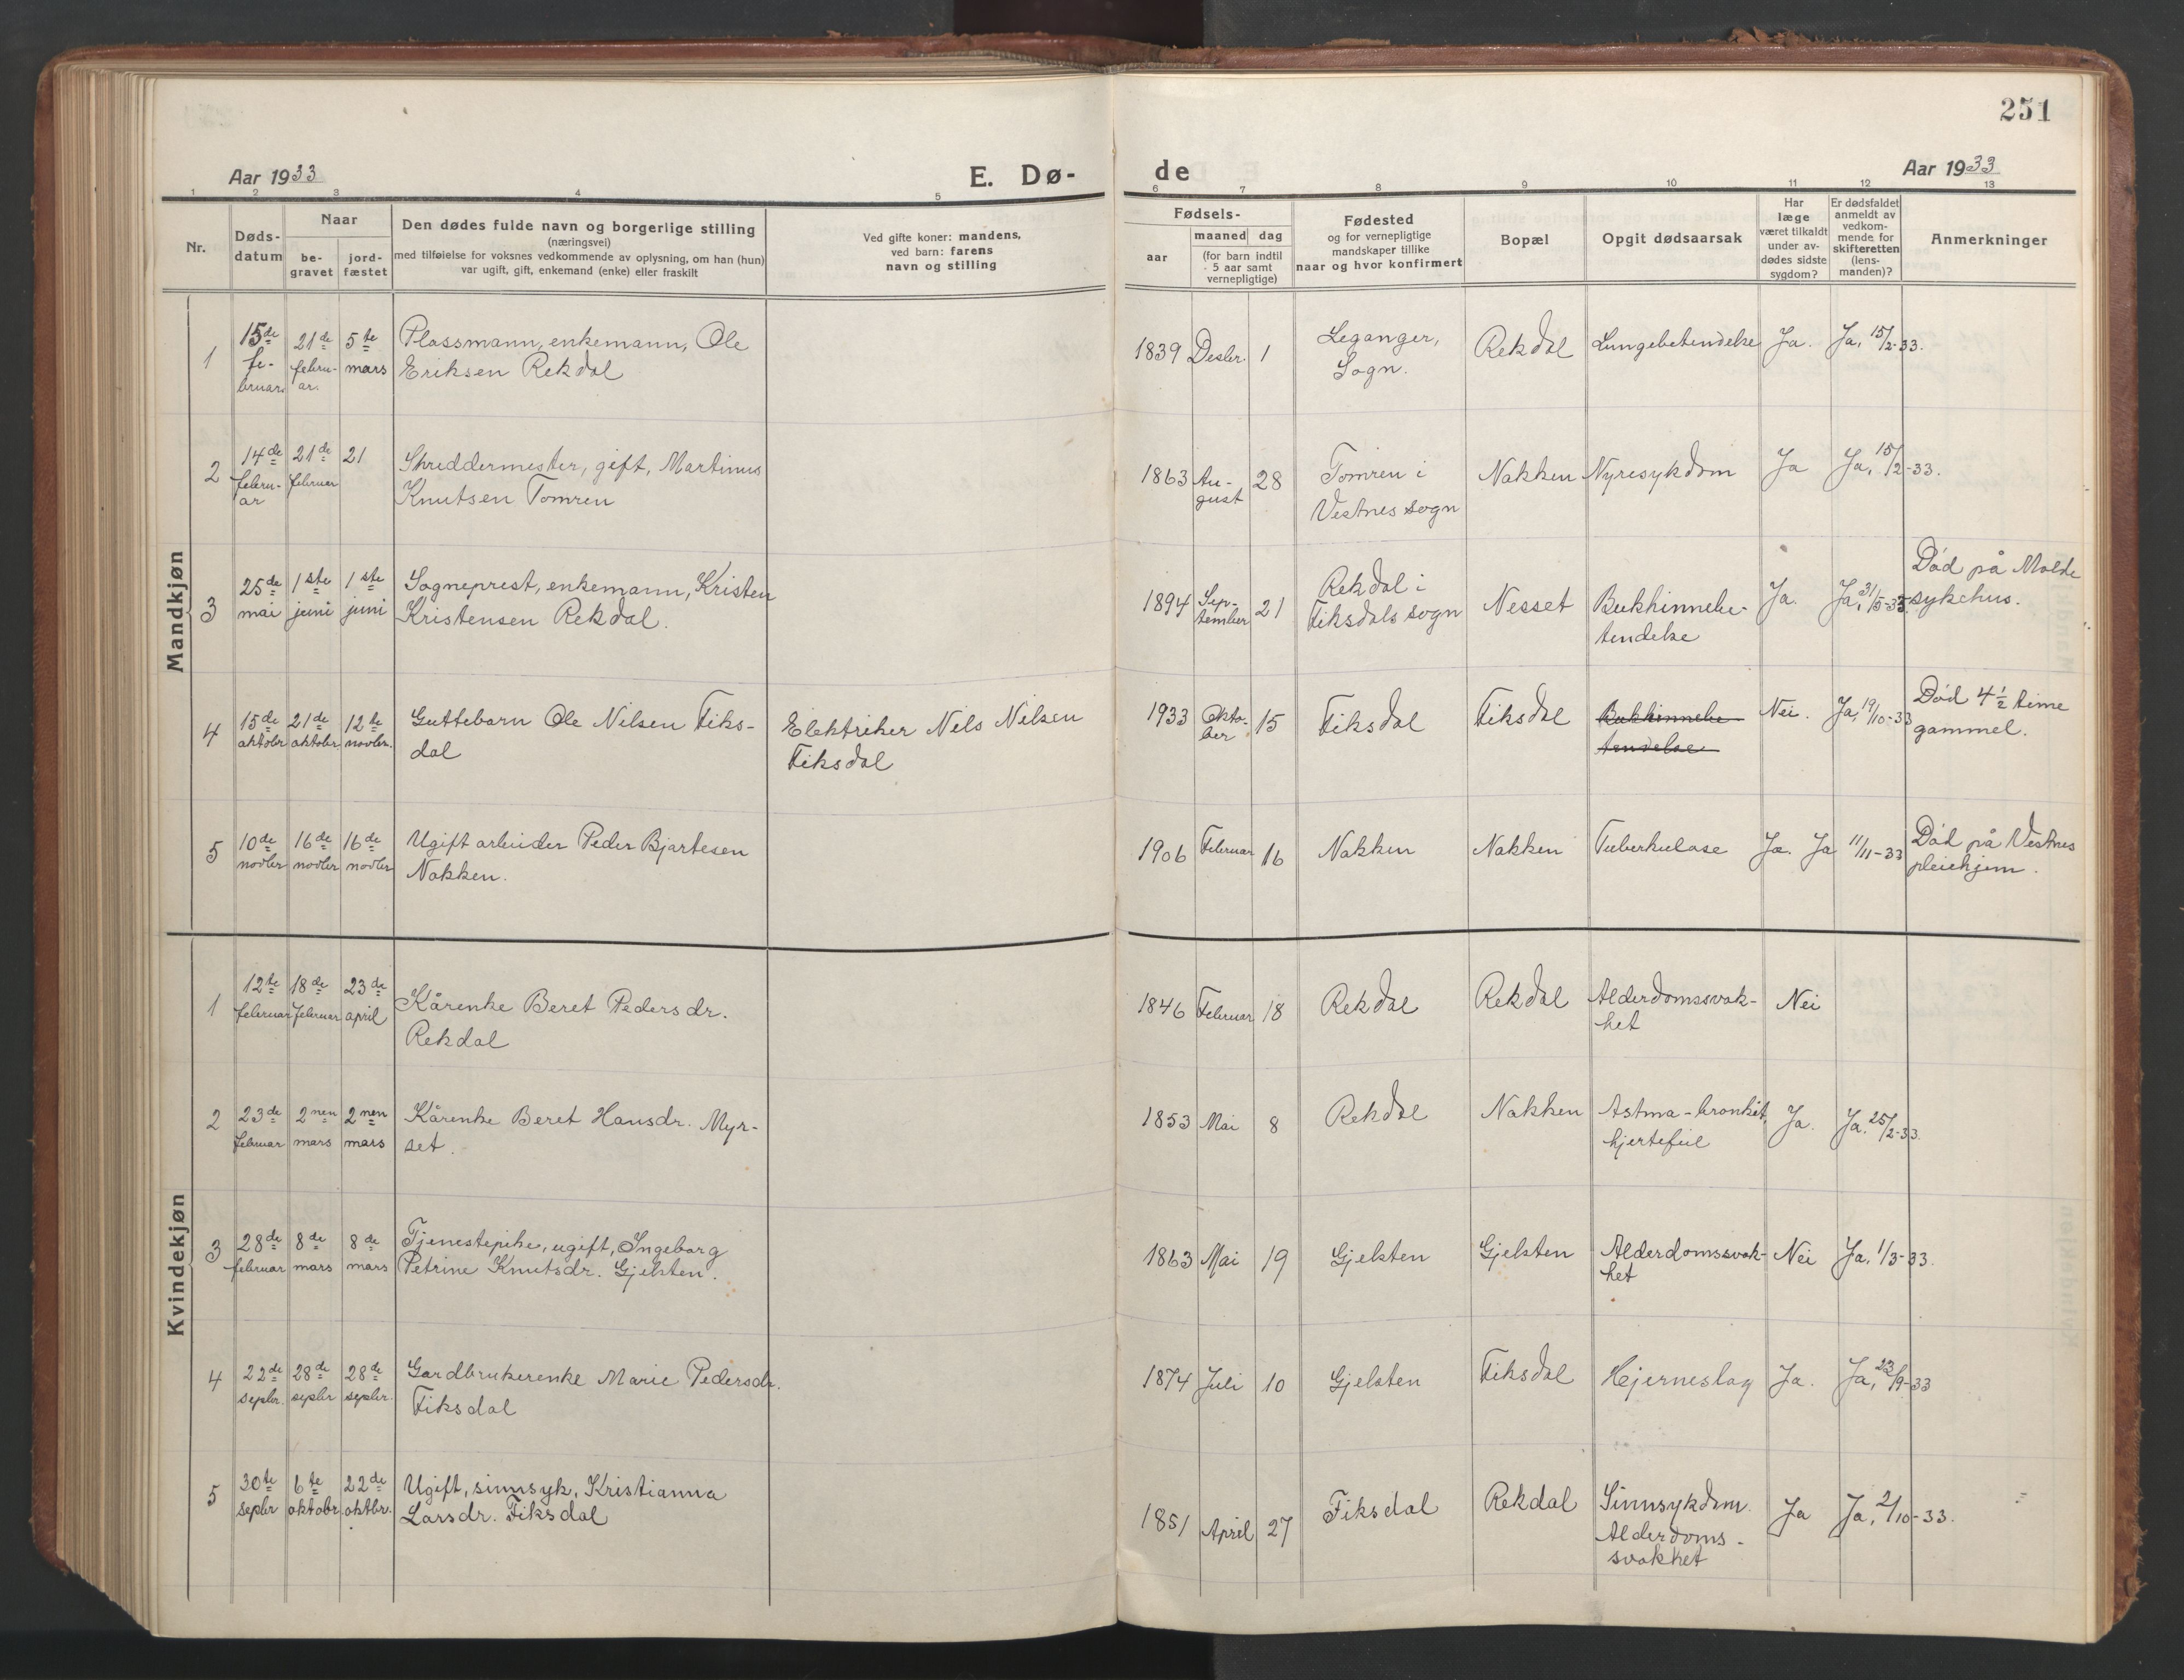 251
Aar 1933
E. Dø-
de
Aar 1933
1 2 3 4 5 6 7 8 9 10 11 12 13
Nr.
Døds-
datum
Naar
be-
gravet
jord-
fæstet
Den dødes fulde navn og borgerlige stilling
(næringsvei)
med tilføielse for voksnes vedkommende av oplysning, om han (hun)
var ugift, gift, enkemand (enke) eller fraskilt
Ved gifte koner: mandens,
ved barn: farens
navn og stilling
Fødsels-
aar
maaned dag
(for barn indtil
5 aar samt
vernepligtige)
Fødested
og for vernepligtige
mandskaper tillike
naar og hvor konfirmert
Bopæl
Opgit dødsaarsak
Har
læge
været tilkaldt
under av-
dødes sidste
sygdom?
Er dødsfaldet
anmeldt av
vedkom-
mende for
skifteretten
(lens-
manden)?
Anmerkninger
Mandkjøn
1
15de
fe-
bruar
21de
febru-
ar.
5te
mars
Plassmann, enkemann, Ole
Eriksen Rekdal
1839 Desbr. 1
Leganger,
Sogn.
Rekdal
Lungebetendelse
Ja.
Ja, 15/2-33.
2
14de
febru-
ar
21de
februar
21
Skreddermester, gift, Martinus
Knutsen Tomren
1863 Au-
gust
28
Tomren i
Vestnes sogn
Nakken
Nyresykdom
Ja
Ja, 15/2-33.
3
25de
mai
1ste
juni
1ste
juni
Sogneprest, enkemann, Kristen
Kristensen Rekdal.
1894 Sep-
tember
21
Rekdal i
Fiksdals sogn
Nesset
Bukhinnebe-
tendelse
Ja.
Ja, 31/5-33.
Død på Molde
sykehus.
4
15de
oktobr
21de
oktobr.
12te
novbr.
Guttebarn Ole Nilsen Fiks-
dal
Elektriker Nils Nilsen
Fiksdal
1933 Okto-
ber
15
Fiksdal
Fiksdal
Bukhinnebe
tendelse
Nei.
Ja, 19/10-33
Død 4 1/2 time
gammel.
5
10de
novbr
16de
novbr
16de
novbr
Ugift arbeider Peder Bjartesen
Nakken.
1906 Februar 16
Nakken
Nakken
Tuberkulose
Ja.
Ja 11/11-33
Død på Vestnes
pleiehjem.
Kvindekjøn
1
12te
februar
18de
februar
23de
april
Kårenke Beret Pedersdr.
Rekdal
1846 Februar 18
Rekdal
Rekdal
Alderdomssvak-
het
Nei
2
23de
februar
2nen
mars
2nen
mars
Kårenke Beret Hansdr. Myr-
set.
1853 Mai 8
Rekdal
Nakken
Astma-bronkit,
hjertefeil
Ja.
Ja. 25/2-33.
3
28de
februar
8de
mars
8de
mars
Tjenestepike, ugift, Ingeborg
Petrine Knutsdr. Gjelsten.
1863 Mai 19
Gjelsten
Gjelsten
Alderdomssvak-
het
Nei
Ja, 1/3-33.
4
22de
sepbr.
28de
sepbr
28de
sepbr.
Gardbrukerenke Marie Pedersdr.
Fiksdal
1874 Juli 10
Gjelsten
Fiksdal
Hjerneslag
Ja.
Ja, 23/9-33
5
30te
sepbr
6te
oktobr
22de
oktbr.
Ugift, sinnsyk, Kristianna
Larsdr. Fiksdal
1851 April 27
Fiksdal
Rekdal
Sinnsykdom.
Alderdoms-
svakhet
Ja
Ja, 2/10-33.